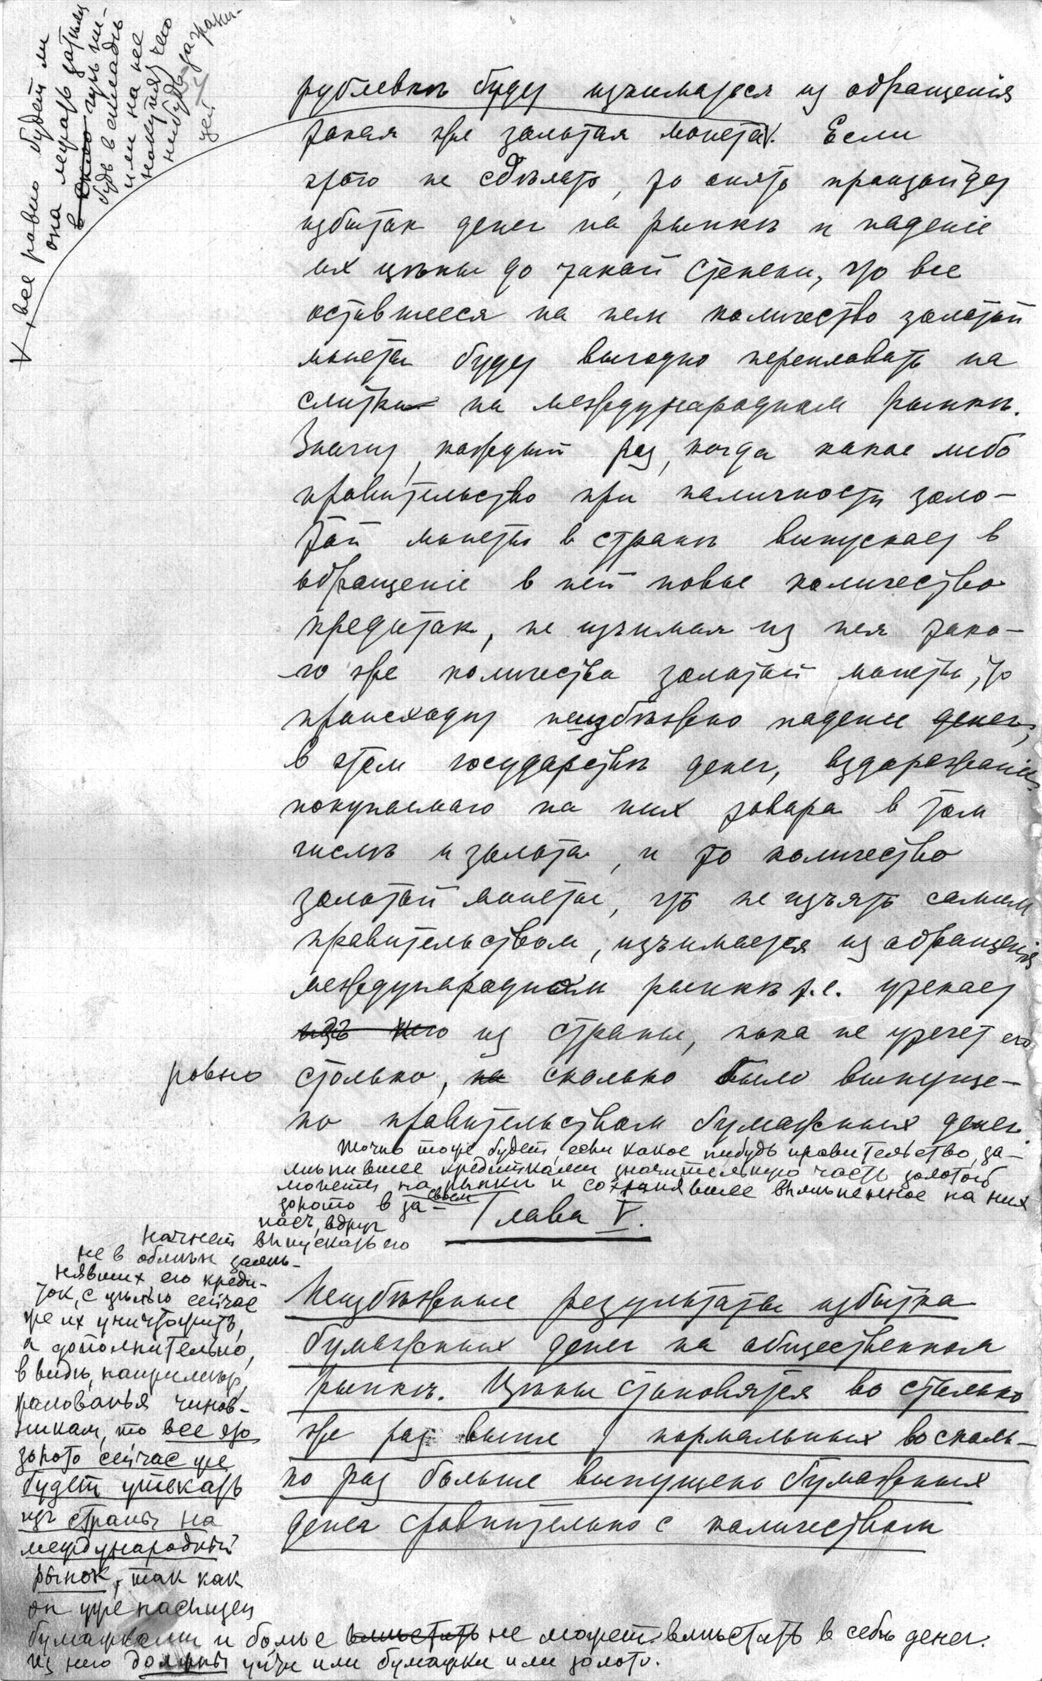 все равно будет ли
она лежать затым
в чулхни-
будь в складъ
или на нее
накупят чего
нибудь заграни-
цей
рублевкъ будет изъиматься из обращенія
такая же золотая монета. Если
этого не сдълать, то опять произойдет
избыток денег на рынкъ и паденіе
их цъны до такой степени, что все
оставшееся на нем количество золотой
монеты будет выгодно переплавить на
слитки на международном рынкъ.
Значит, каждый раз, когда какое либо
правительство при наличности золо-
той монеты в странъ выпускает в
обращеніе в ней новое количество
кредиток, не изъимая из нея тако-
го же количества золотой монеты, то
происходит неизбъжно паденіе денег,
в этом государствъ денег, вздорожаніе
покупаемаго на них товара в том
числъ и золота, и то количество
золотой монеты, что не изъято самим
правительством, изъимается из обращенія
международным рынкъ т.е. утекает
изъ него из страны, пока не утечет его
ровно столько, на сколько было выпуще-
но правительством бумажных денег.
Точно тоже будет, если какое нибудь правительство, за-
мънившее кредитками значительную часть золотой
монеты на рынкъ и сохранявшее вымъненное на них
золото в своем за-
пасъ, вдруг
начнет выпускать его
не в обмън замъ-
нявших его креди-
ток, с цълью сейчас
же их уничтожить,
а дополнительно,
в видъ, напримър
жалованья чинов-
никам, то все это
золото сейчас же
будет утекать
изъ страны на
международный
рынок, так как
он уже насыщен
бумажками и больше вмъстить не может вмъстить в себъ денег.
из него должны уйти или бумажки или золото.
Глава V.
Неизбъжные результаты избытка
бумажных денег на общественном
рынкъ. Цъны становятся во столько
же раз выше нормальных во сколь-
ко раз больше выпущено бумажных
денег сравнительно с количеством